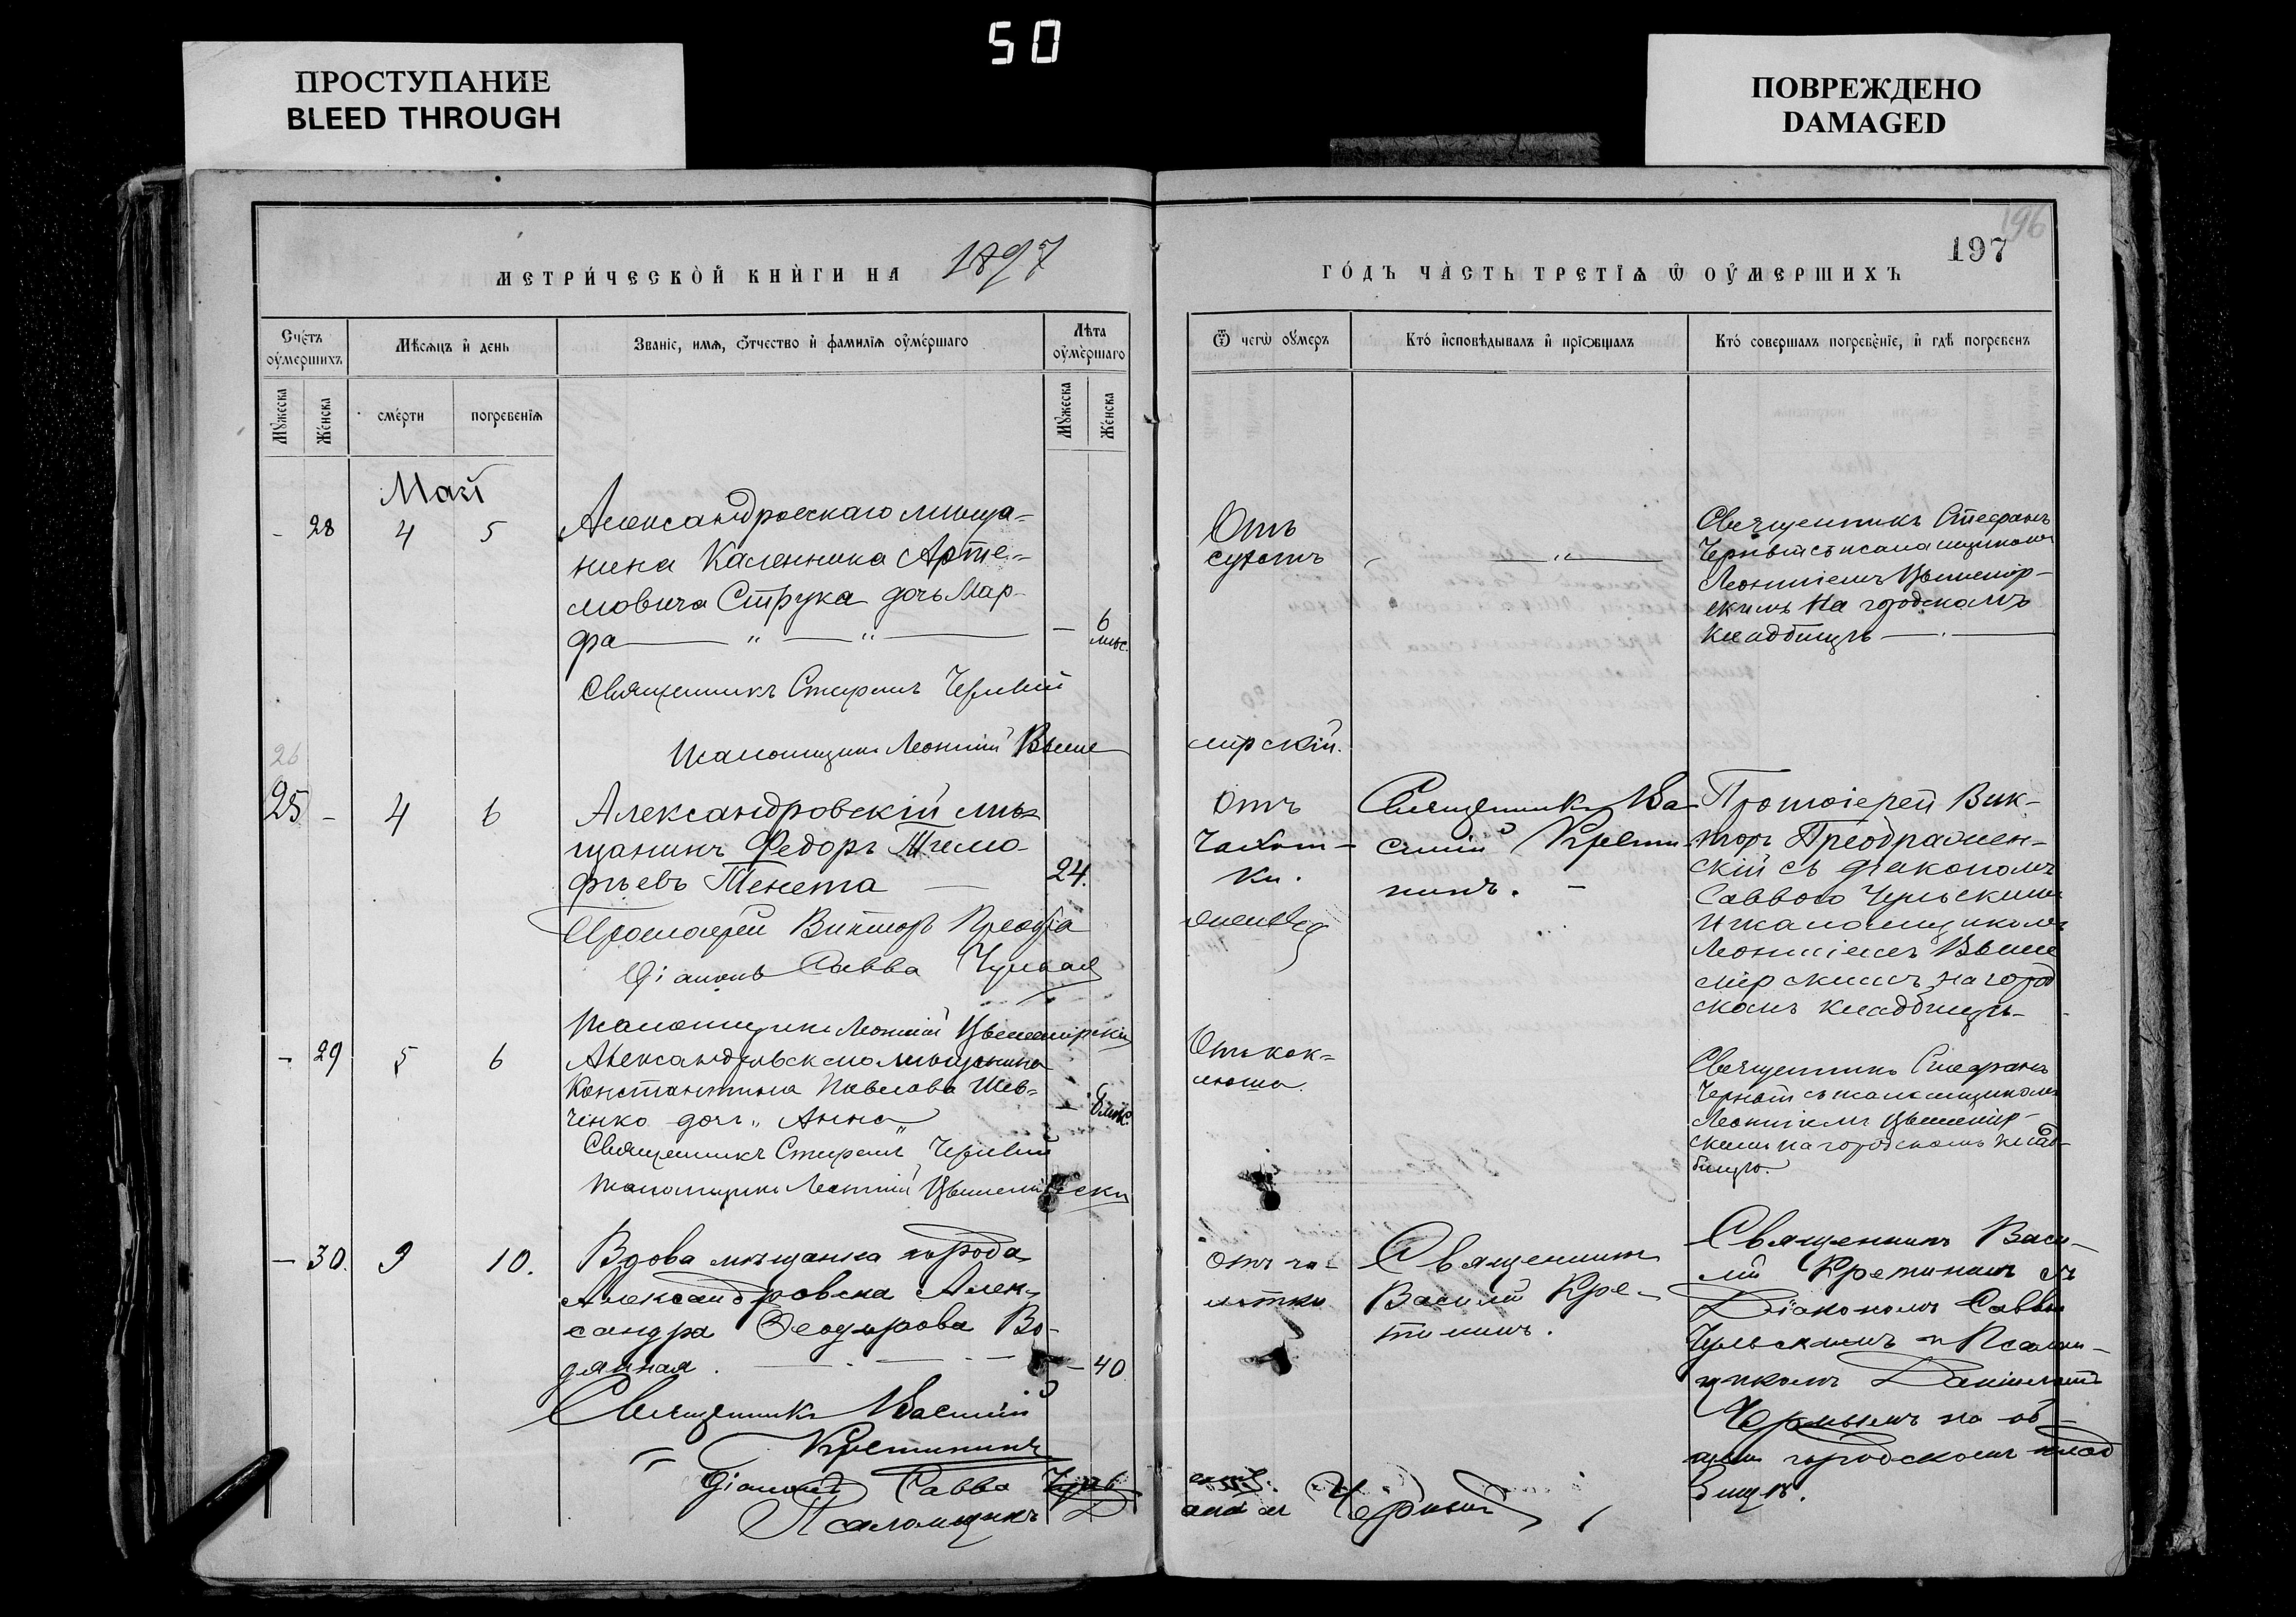 50
ПРОСТУПАНИЕ
BLEED THROUGH
ПОВРЕЖДЕНО
DAMAGED
196
197
МЕТРИ́ЧЕСКОЙ КНИ́ГИ НА 1897
ГО́ДЪ ЧА́СТЬ ТРЕТІѦ Ѡ ОУ҆МЕРШИХЪ
Сче́тъ оу҆ме́ршихъ
Мѣ́сѧцъ и҆ день
Званіе, имѧ, ѻ҆́тчество и҆ фамилїѧ оу҆ме́ршаго
Лѣта оу҆ме́ршаго
Мꙋ́жеска
Же́нска
сме́рти
погребе́нїѧ
Мꙋ́жеска
Же́нска
Ѿ чегѡ̀ оу҆́меръ
Кто́ и҆сповѣ́дывалъ и҆ прїѡбща́лъ
Кто́ соверша́лъ погребе́нїе, и҆ гдѣ̀ погребе́нъ
Май
- 28 4 5
Александровскаго мѣща-
нина Каленника Арте-
мовича Струка дочь Мар-
фа
- 6 мѣс.
Священникъ Стефанъ Черный
Псаломщикъ Леонтій Выше
мірскій.
Отъ
сухотъ
Священникъ Стефанъ
Черный съ псаломщикомъ
Леонтіемъ Вышемір-
скимъ на городскомъ
кладбищѣ
26
25 - 4 6
Александровскій мѣ-
щанинъ Федоръ Тимо-
фѣевъ Тенета
24.
Протоіерей Виктор Преобра
Діаконъ Савва Чульскій
Псаломщикъ Леонтій Вышемірскій
Отъ
Чахот-
ки.
Священникъ Ва
силій Крети-
нинъ. -
Протоіерей Вик-
торъ Преображен-
скій съ діакономъ
Саввою Чульскимъ
и псаломщикомъ
Леонтіемъ Выше
мірскимъ на город
скомъ кладбищѣ
- 29 5 6
Александровскаго мѣщанина
Константина Павлова Шев-
ченко дочь Анна
- 8 мѣс.
Священникъ Стефанъ Черный
Псаломщикъ Леонтій Вышемірскій
Отъ кок-
люша.
Священникъ Стефанъ
Черный съ псаломщикомъ
Леонтіемъ Вышемір-
скимъ на городскомъ клад-
бищѣ.
- 30. 9 10.
Вдова мѣщанка города
Александровска Алек-
сандра Феодорова Во-
дянная.
- 40
Священникъ Василій
Кретининъ
Діаконъ Савва Чуль
Псаломщикъ
Черный
Отъ ча-
хотки
Священникъ
Василій Кре-
тининъ.
Священникъ Васи-
лій Кретининъ съ
Діакономъ Саввою
Чульскимъ и Псалом-
щикомъ Даніиломъ
Чернымъ на об-
щемъ городскомъ клад
бищѣ.